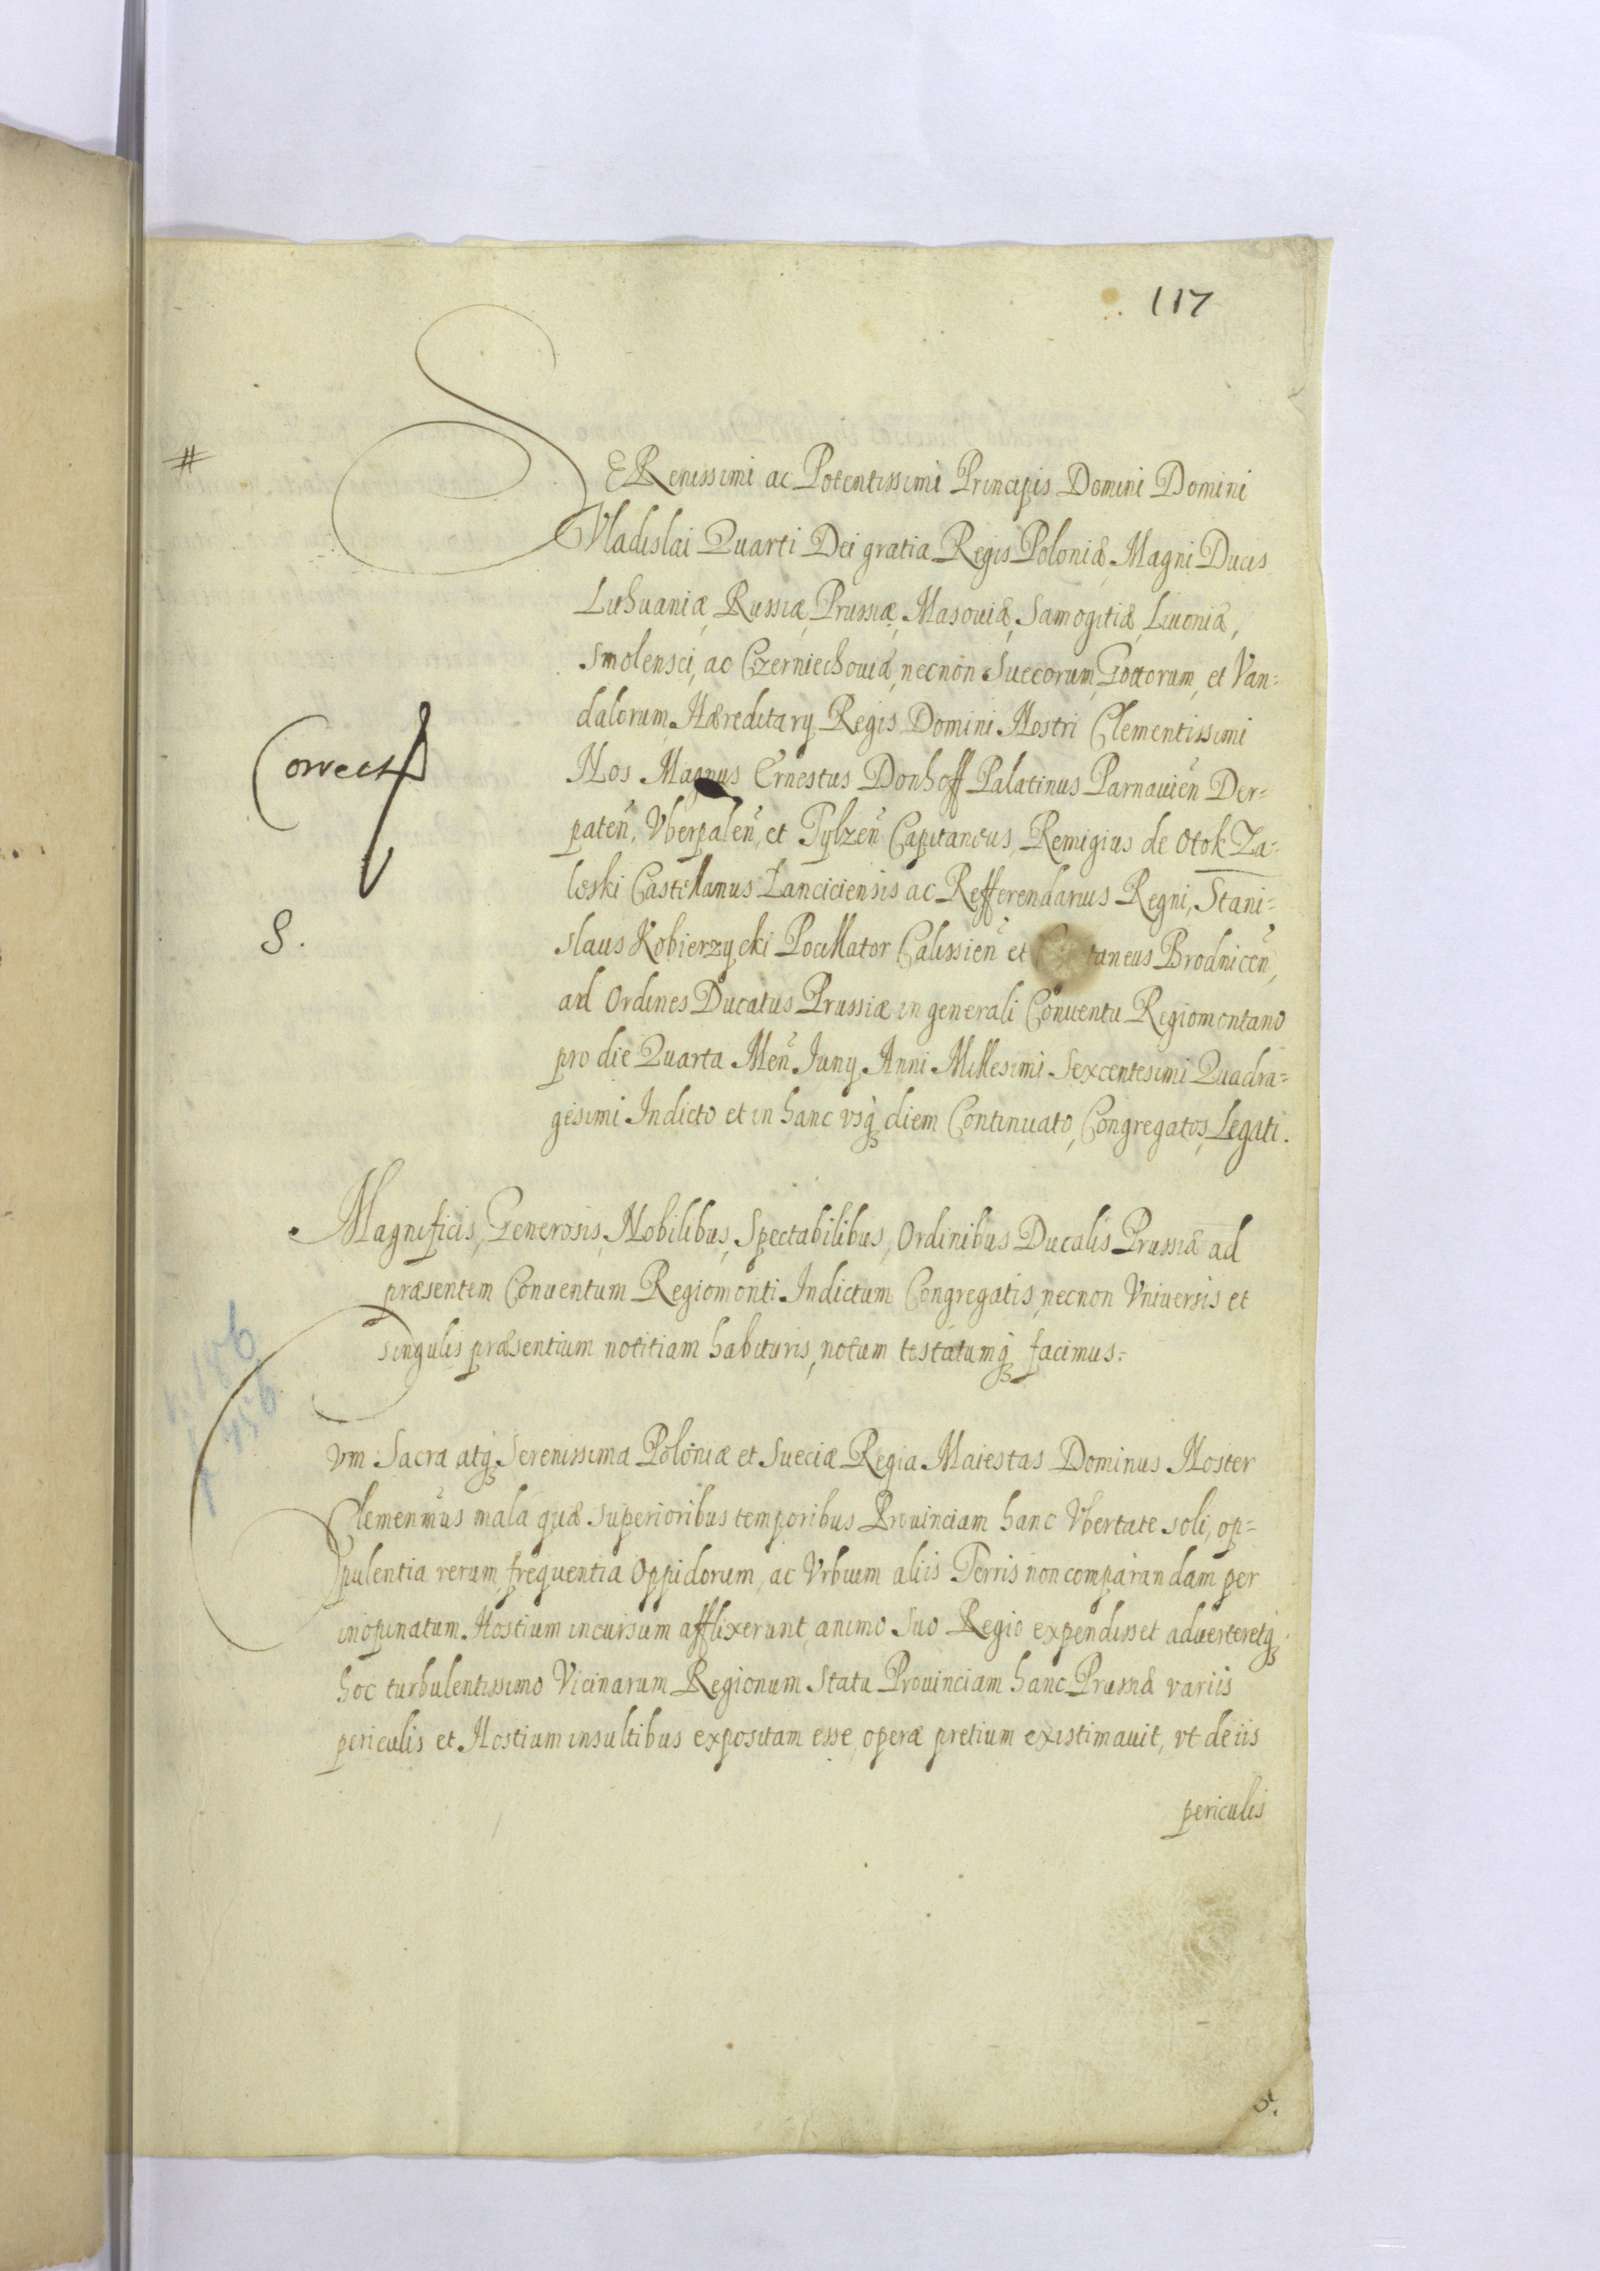 117
#
SERenissimi ac Potentissimi Principis Domini Domini
Vladislai Quarti Dei gratia Regis Poloniæ, Magni Ducis
Lithuaniæ, Russiæ, Prussiæ, Masouiæ, Samogitiæ, Liuoniæ,
Smolensci, ac Czerniechouiæ, necnon Suecorum, Gottorum, et Van=
dalorum Hæreditarÿ Regis Domini Nostri Clementissimi
Correct
Nos Magnus Ernestus Donhoff Palatinus Parnauieñ Der=
pateñ, Vberpaleñ, et Tylzeñ Capitaneus, Remigius de Otok Za=
leski Castellanus Lanciciensis ac Refferendarius Regni, Stani=
S.
slaus Kobierzycki Pocillator Calissieñ et taneus Brodniceñ,
ad Ordines Ducatus Prussiæ in generali Conuentu Regiomontano
pro die Quarta Meñ Junÿ Anni Millesimi Sexcentesimi Quadra=
gesimi Indicto et in hanc vsq diem Continuato, Congregatos, Legati.
Magnificis, Generosis, Nobilibus, Spectabilibus, Ordinibus Ducalis Prussiæ ad
præsentem Conuentum Regiomonti Indictum Congregatis, necnon Vniuersis et
singulis præsentium notitiam habituris, notum testatumq facimus:
Cvm Sacra atq Serenissima Poloniæ et Sueciæ Regia Maiestas Dominus Noster
Clemenmus mala quæ superioribus temporibus Prouinciam hanc Vbertate soli, op=
pulentia rerum, frequentia Oppidorum, ac Vrbium aliis Terris non comparandam per
inopinatum Hostium incursum afflixerunt, animo Suo Regio expendisset aduerteretq
hoc turbulentissimo Vicinarum Regionum Statu Prouinciam hanc Prussiæ variis
periculis et Hostium insultibus expositam esse, operæ pretium existimauit, vt de iis
periculis